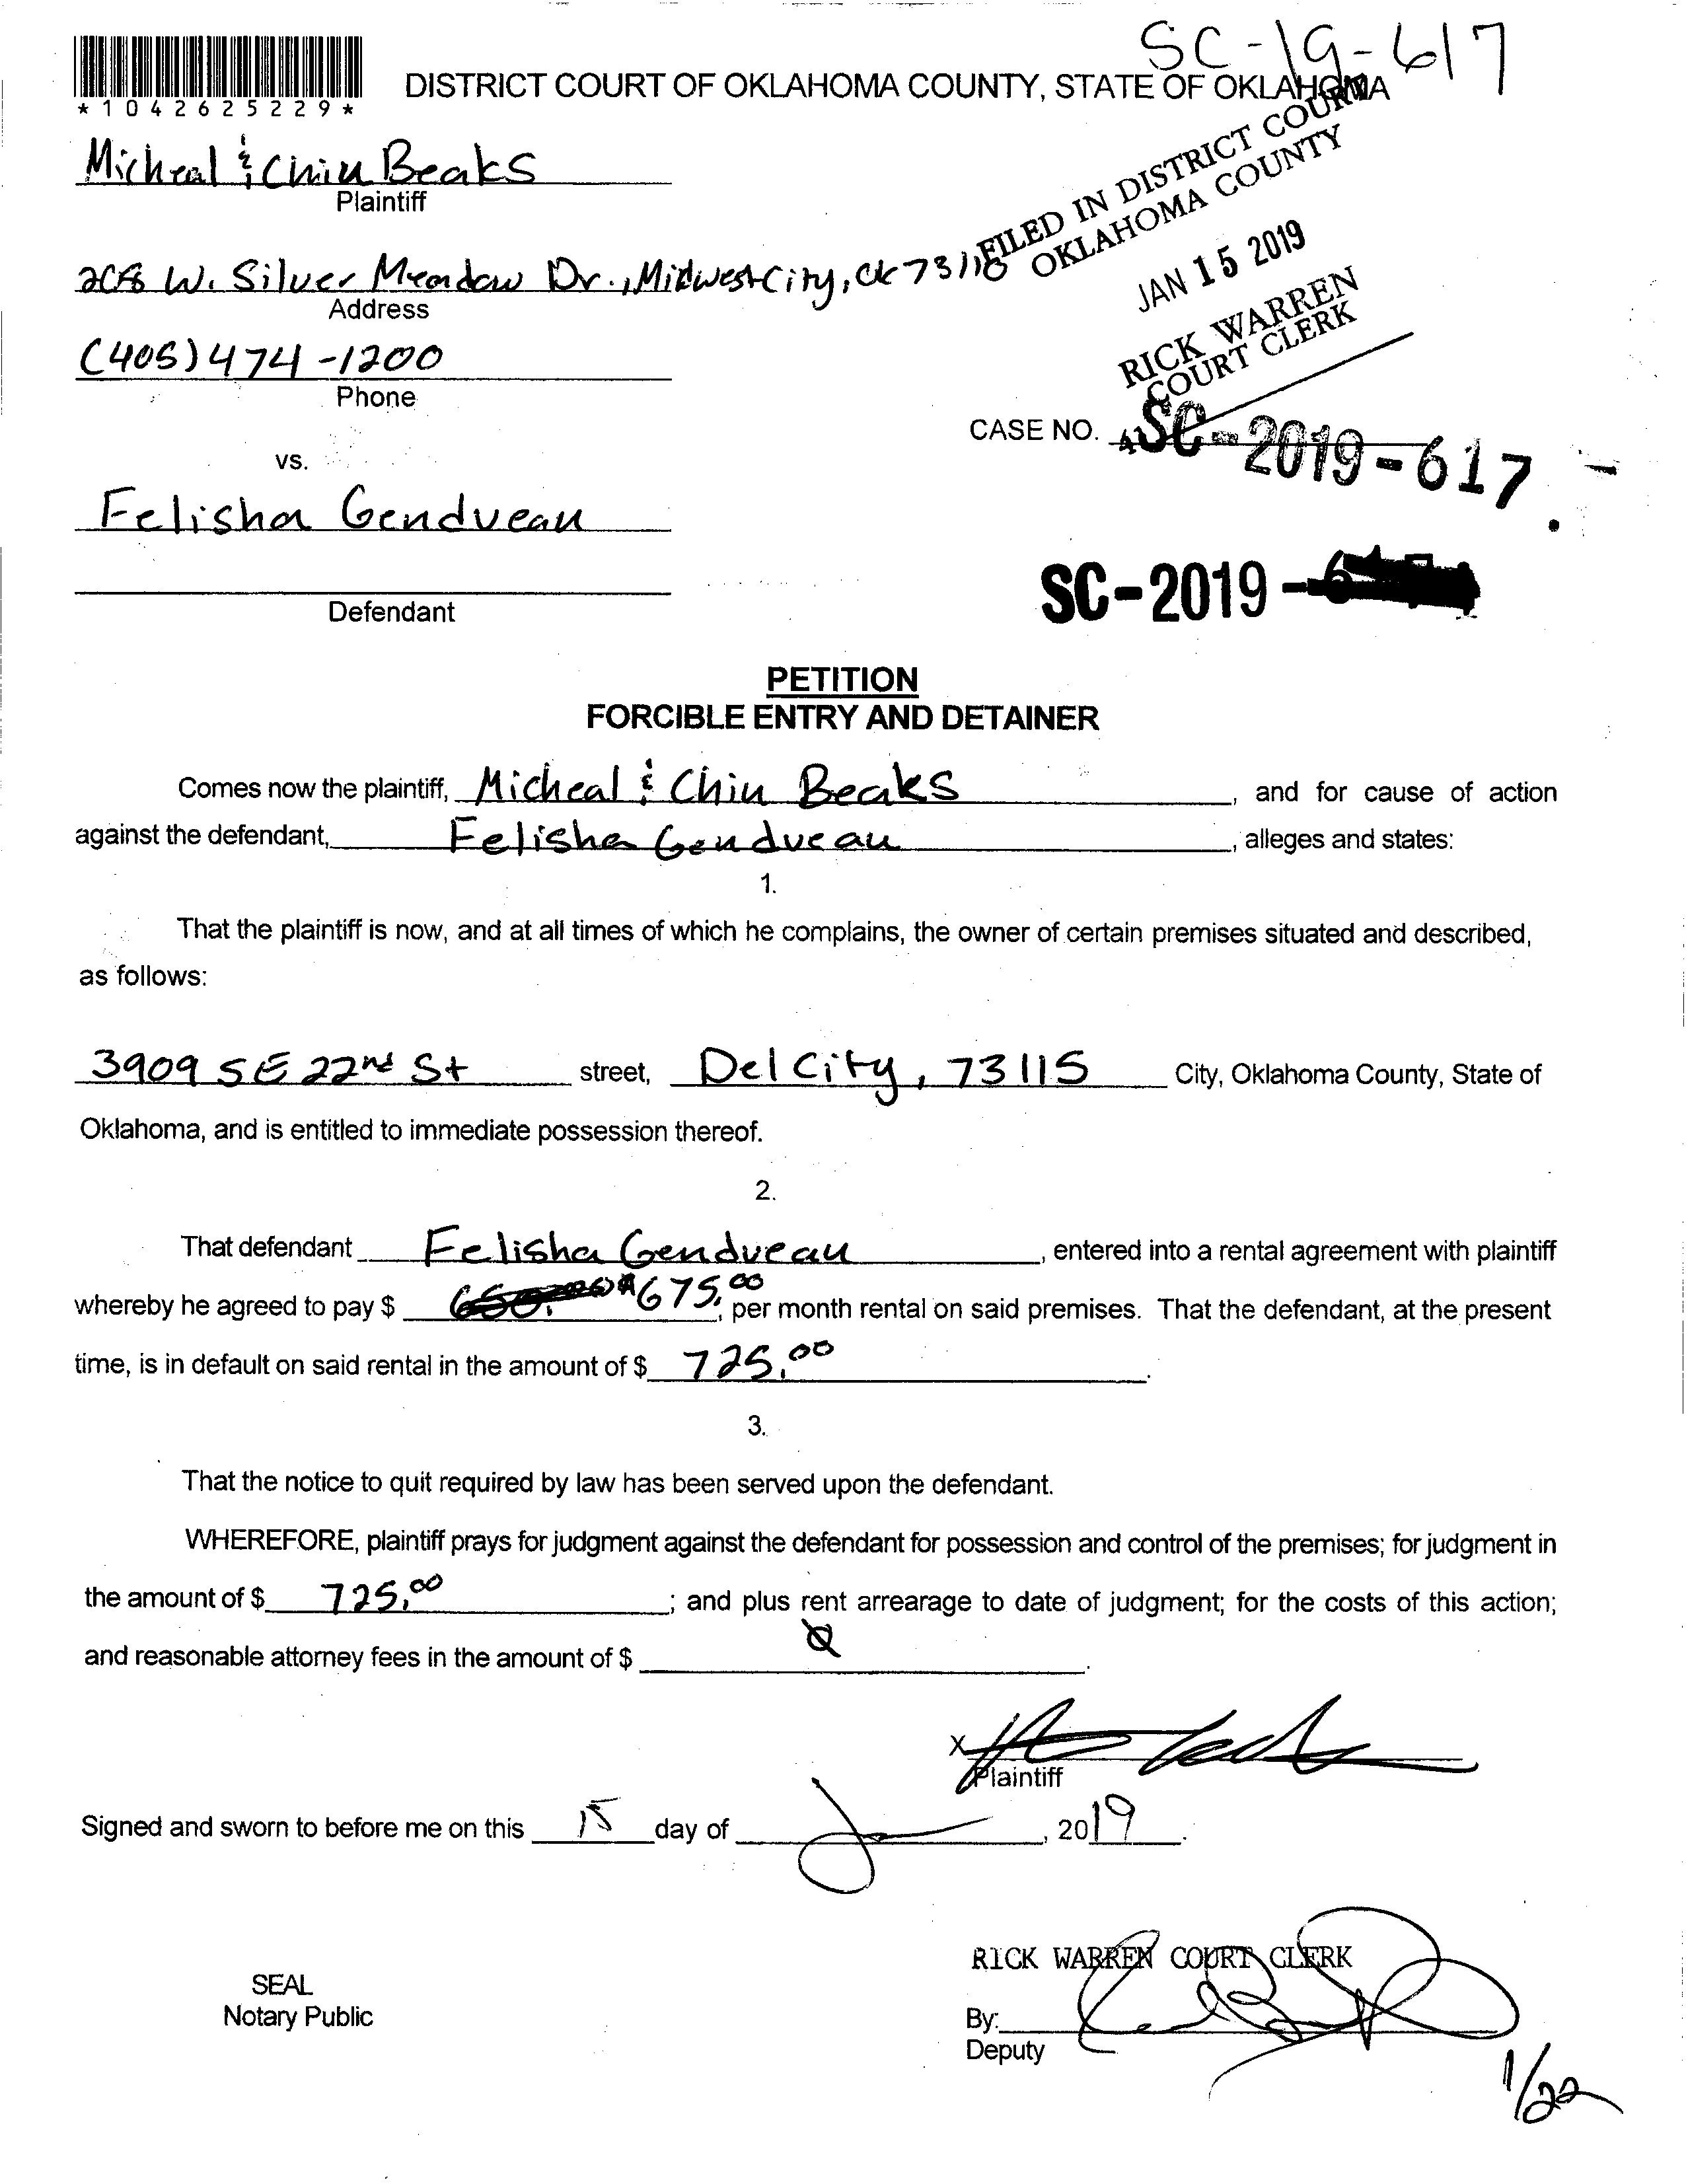 SC-19-617
*1042625229*
DISTRICT COURT OF OKLAHOMA COUNTY, STATE OF OKLAHOMA
Micheal & Chin Beaks
Plaintiff
FILED IN DISTRICT COURT
OKLAHOMA COUNTY
JAN 15 2019
RICK WARREN
COURT CLERK
W. Silver Meadow Dr., Midwest City, Ok 73110
Address
(405) 474-1200
Phone
CASE NO. SC-2019-617
vs.
Felisha Gendueau
SC-2019-
Defendant
PETITION
FORCIBLE ENTRY AND DETAINER
Comes now the plaintiff, Micheal & Chin Beaks, and for cause of action
against the defendant, Felisha Gendueau, alleges and states:
1.
That the plaintiff is now, and at all times of which he complains, the owner of certain premises situated and described,
as follows:
3909 SE 22nd St street, Del City, 73115 City, Oklahoma County, State of
Oklahoma, and is entitled to immediate possession thereof.
2.
That defendant Felisha Gendueau, entered into a rental agreement with plaintiff
whereby he agreed to pay $ 675.00, per month rental on said premises. That the defendant, at the present
time, is in default on said rental in the amount of $ 725.00.
3.
That the notice to quit required by law has been served upon the defendant.
WHEREFORE, plaintiff prays for judgment against the defendant for possession and control of the premises; for judgment in
the amount of $ 725.00; and plus rent arrearage to date of judgment; for the costs of this action;
and reasonable attorney fees in the amount of $ 0.
X
Plaintiff
Signed and sworn to before me on this 15 day of Jan, 2019.
RICK WARREN COURT CLERK
SEAL
Notary Public
By:
Deputy
1/22